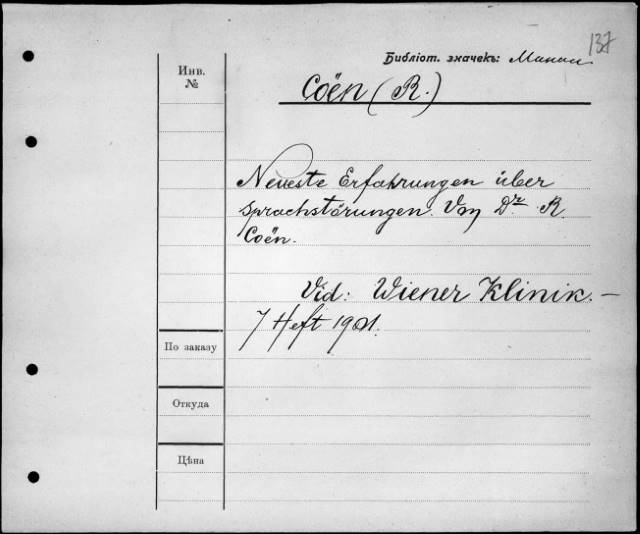 137
Библіот. значекъ:
Инв.
№
Coën (R.)
Neueste Erfahrungen über
Sprachstörungen. Von Dr. R.
Coën.
Vid: Wiener Klinik. —
7 Heft 1901.
По заказу
Откуда
Цѣна